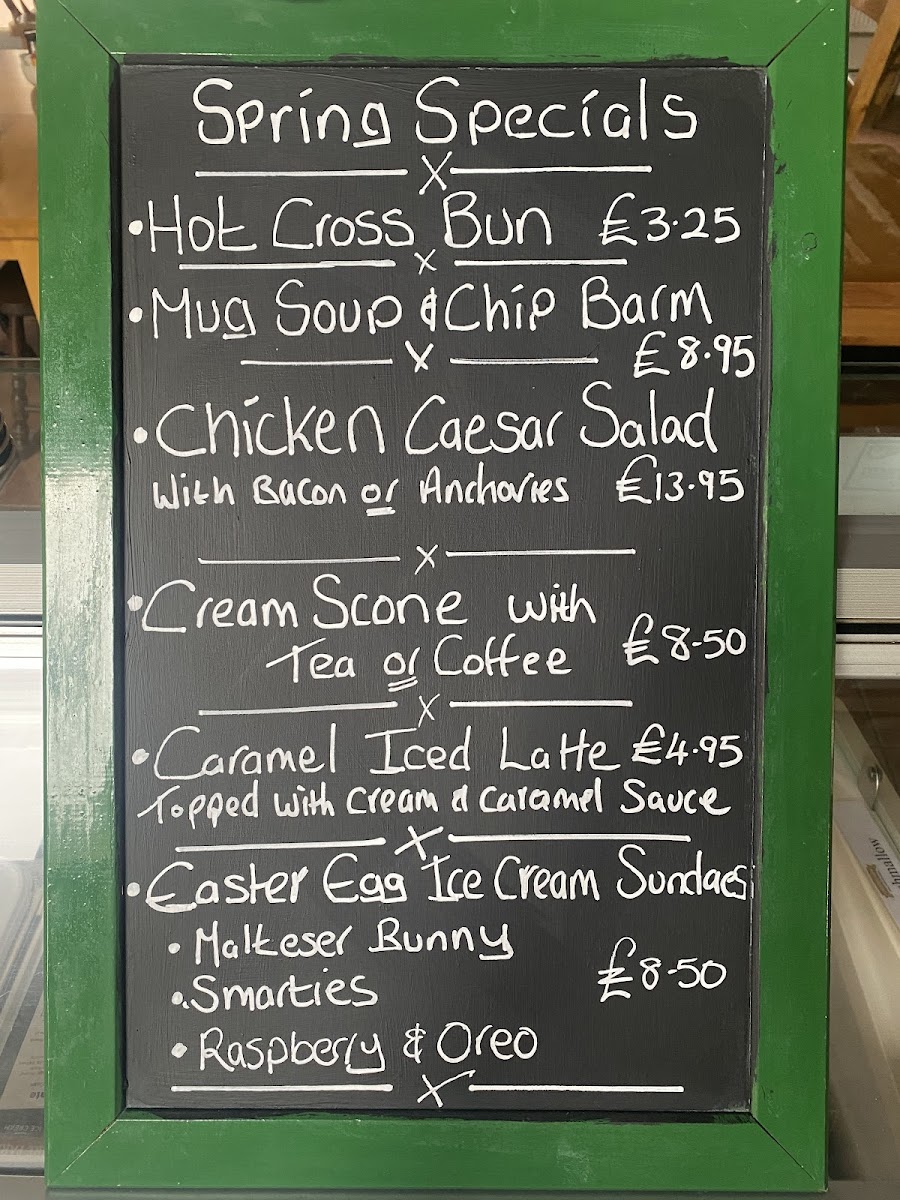 Spring Specials
x
• Hot Cross Bun £3.25
x
• Mug Soup & Chip Barm
£8.95
x
• Chicken Caesar Salad
With Bacon or Anchovies £13.95
x
• Cream Scone with
Tea or Coffee £8.50
x
• Caramel Iced Latte £4.95
Topped with Cream & Caramel Sauce
x
• Easter Egg Ice Cream Sundaes
• Malteser Bunny
£8.50
• Smarties
• Raspberry & Oreo
x